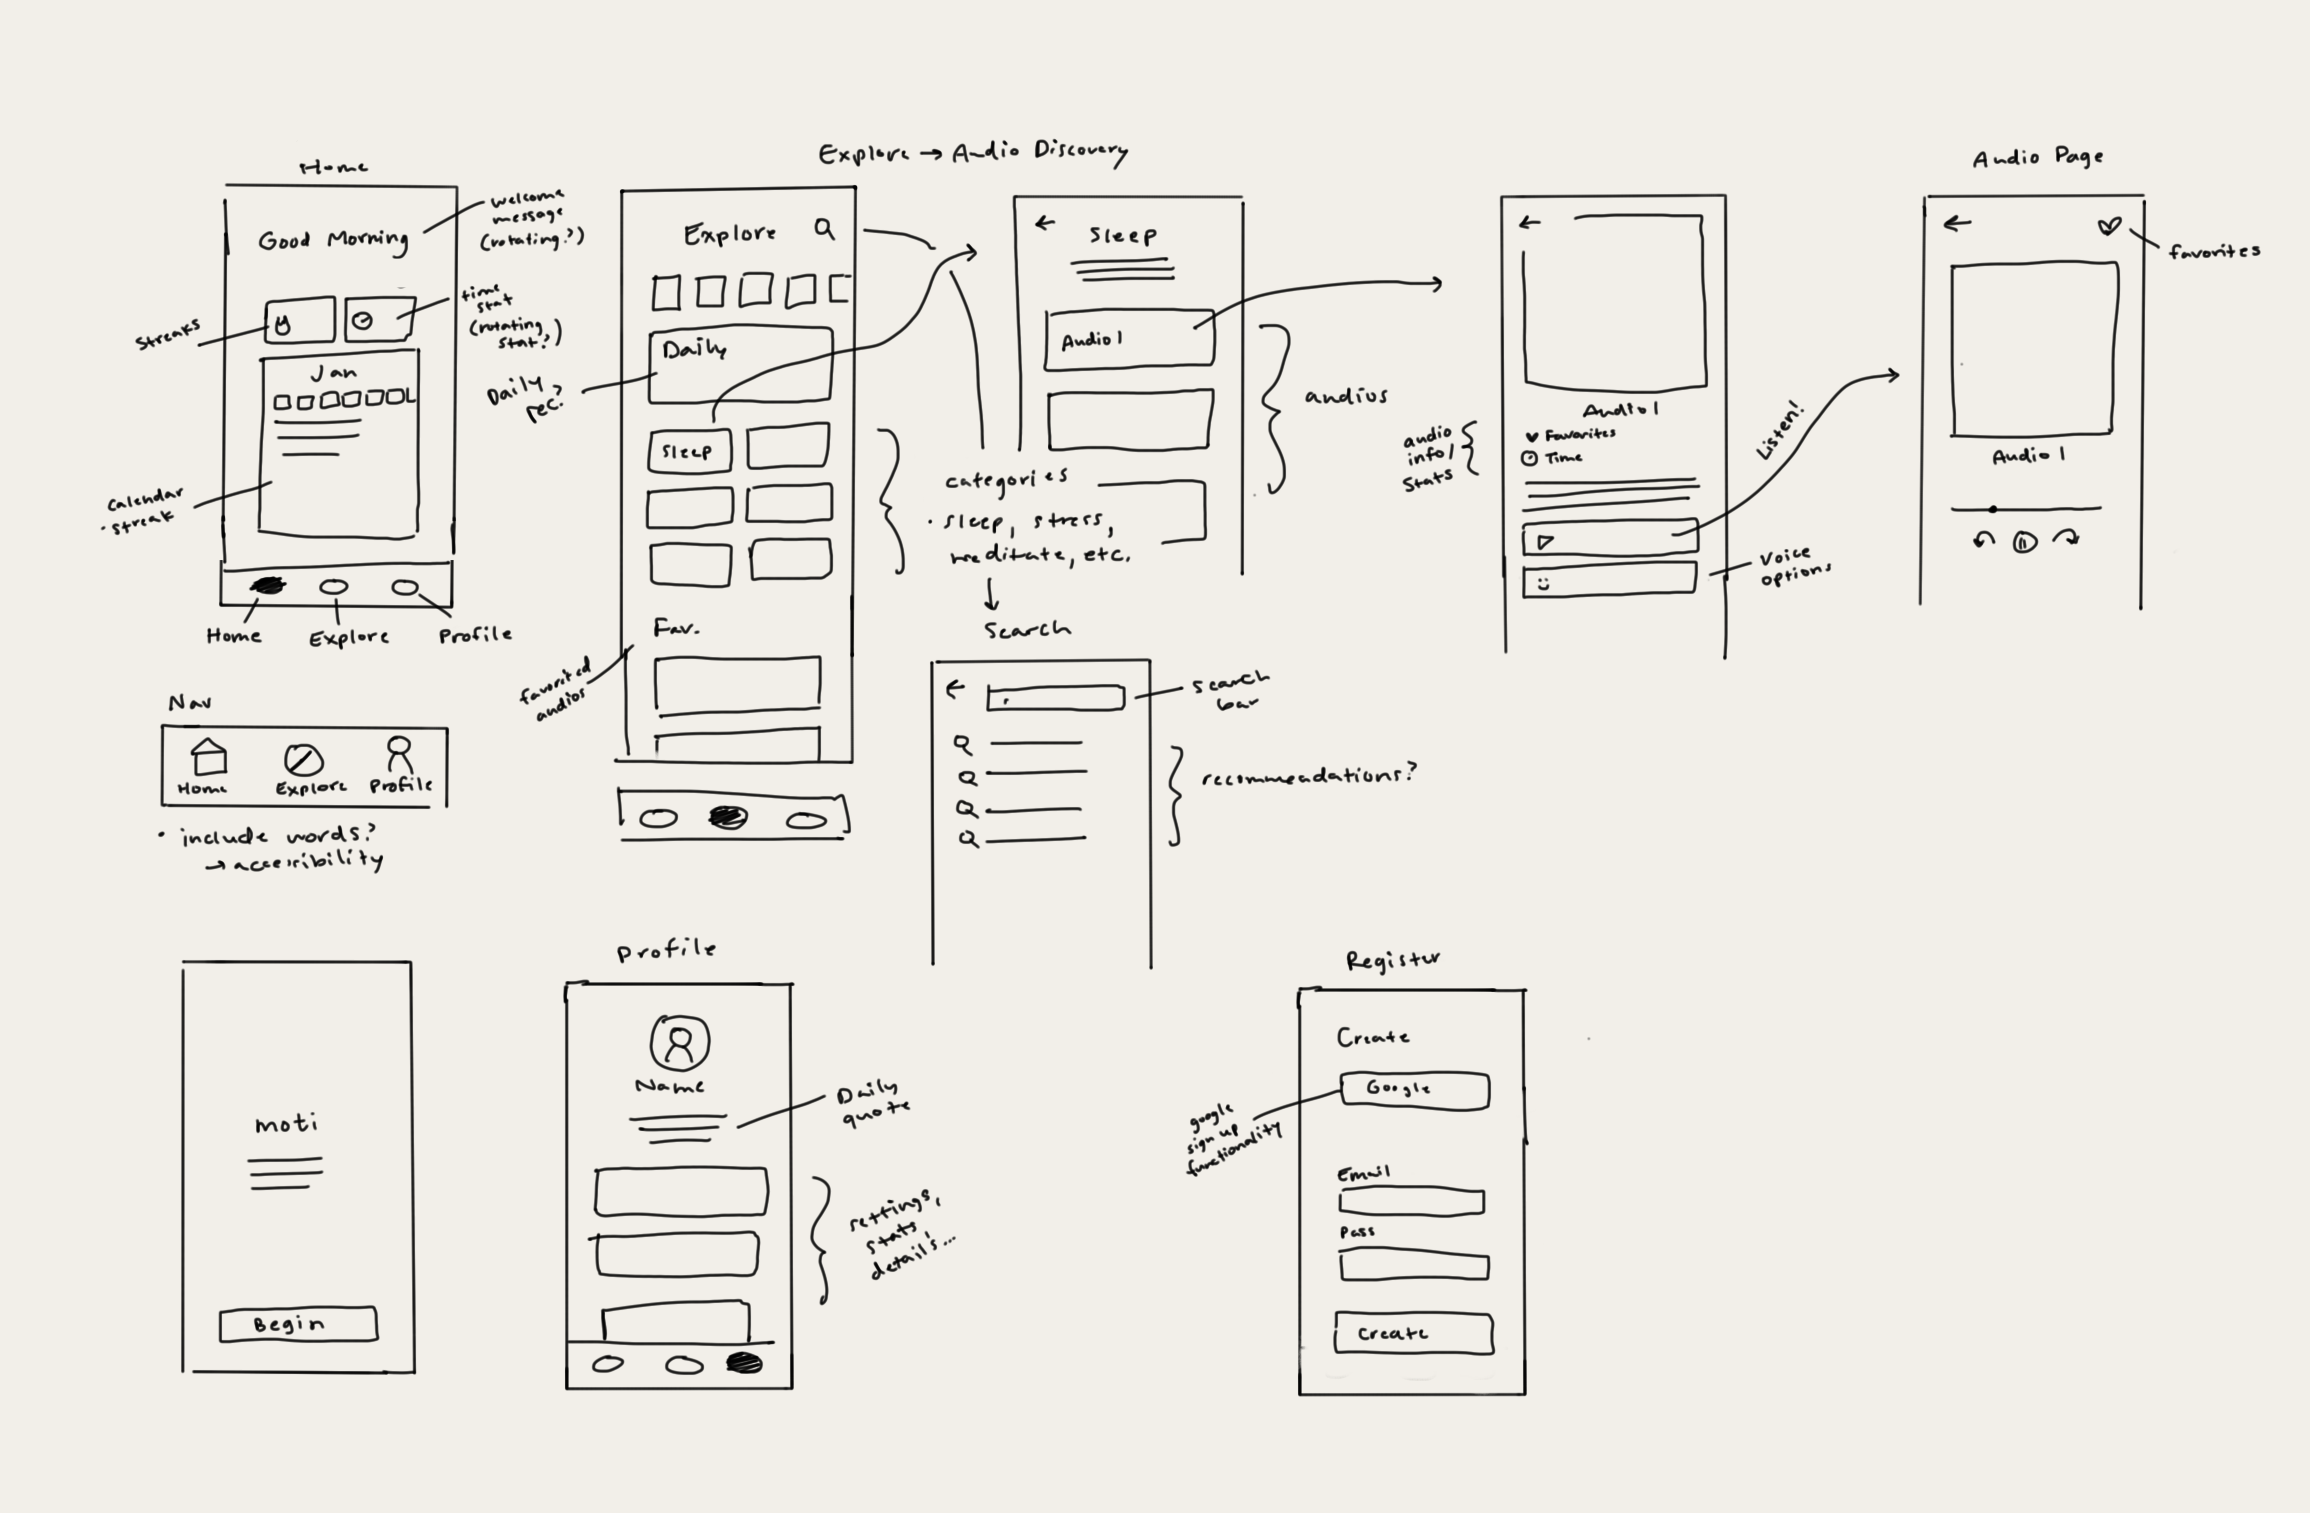 Home
Good Morning
welcome
message
(rotating?)
Streaks
time
stat
(rotating
stat?)
Jan
calendar
• streak
Home
Explore
Profile
Nav
Home
Explore
Profile
• include words?
→ accessibility
Explore → Audio Discovery
Explore
Daily
Daily
rec?
Sleep
Fav.
favorited
audios
categories
• sleep, stress,
meditate, etc.
↓
Search
Sleep
Audio 1
audios
search
bar
recommendations?
Audio 1
Favorites
Time
audio
info/
stats
Listen!
Voice
options
Audio Page
favorites
Audio 1
moti
Begin
Profile
Name
Daily
quote
settings,
stats,
details...
Register
Create
Google
google
sign up
functionality
Email
Pass
Create